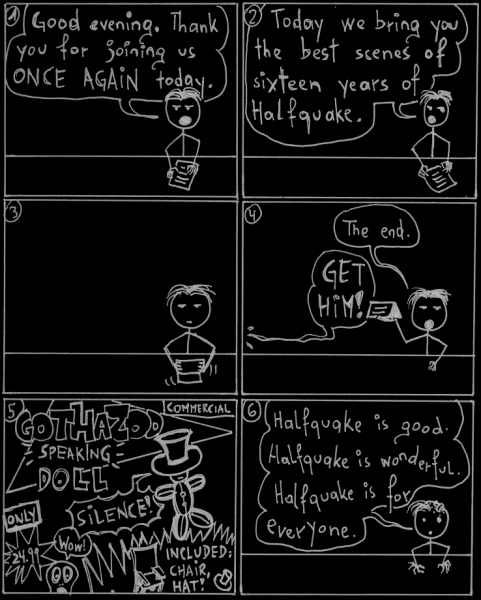 1
Good evening. Thank
you for joining us
ONCE AGAIN today.
2
Today we bring you
the best scenes of
sixteen years of
Halfquake.
3
4
The end.
GET
HiM!
5
COMMERCIAL
GOTHAZOD
SPEAKING
DOLL
SiLENCE!
ONLY
24.99
WOW!
INCLUDED:
CHAIR,
HAT!
6
Halfquake is good.
Halfquake is wonderful.
Halfquake is for
everyone.